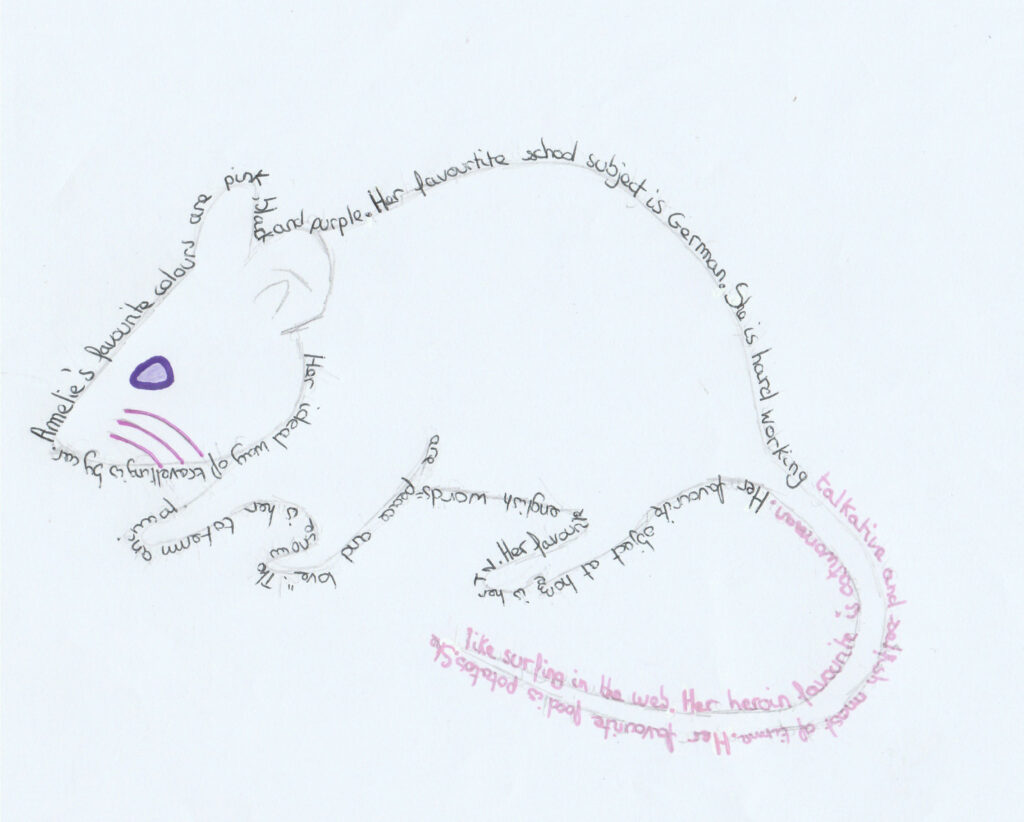 Amelie's favourite colours are pink, black and purple. Her favourtite school subject is German. She is hard working
talkative and selfish most of time. Her favourite food is potatos. She
like surfing in the web. Her heroin favourite is catwoman.
Her favourite object at home is her
T.V. Her favourite
english words
are
peace and
love. The
snow
is her totamm ani
mal
Her ideal way of travelling is by car.